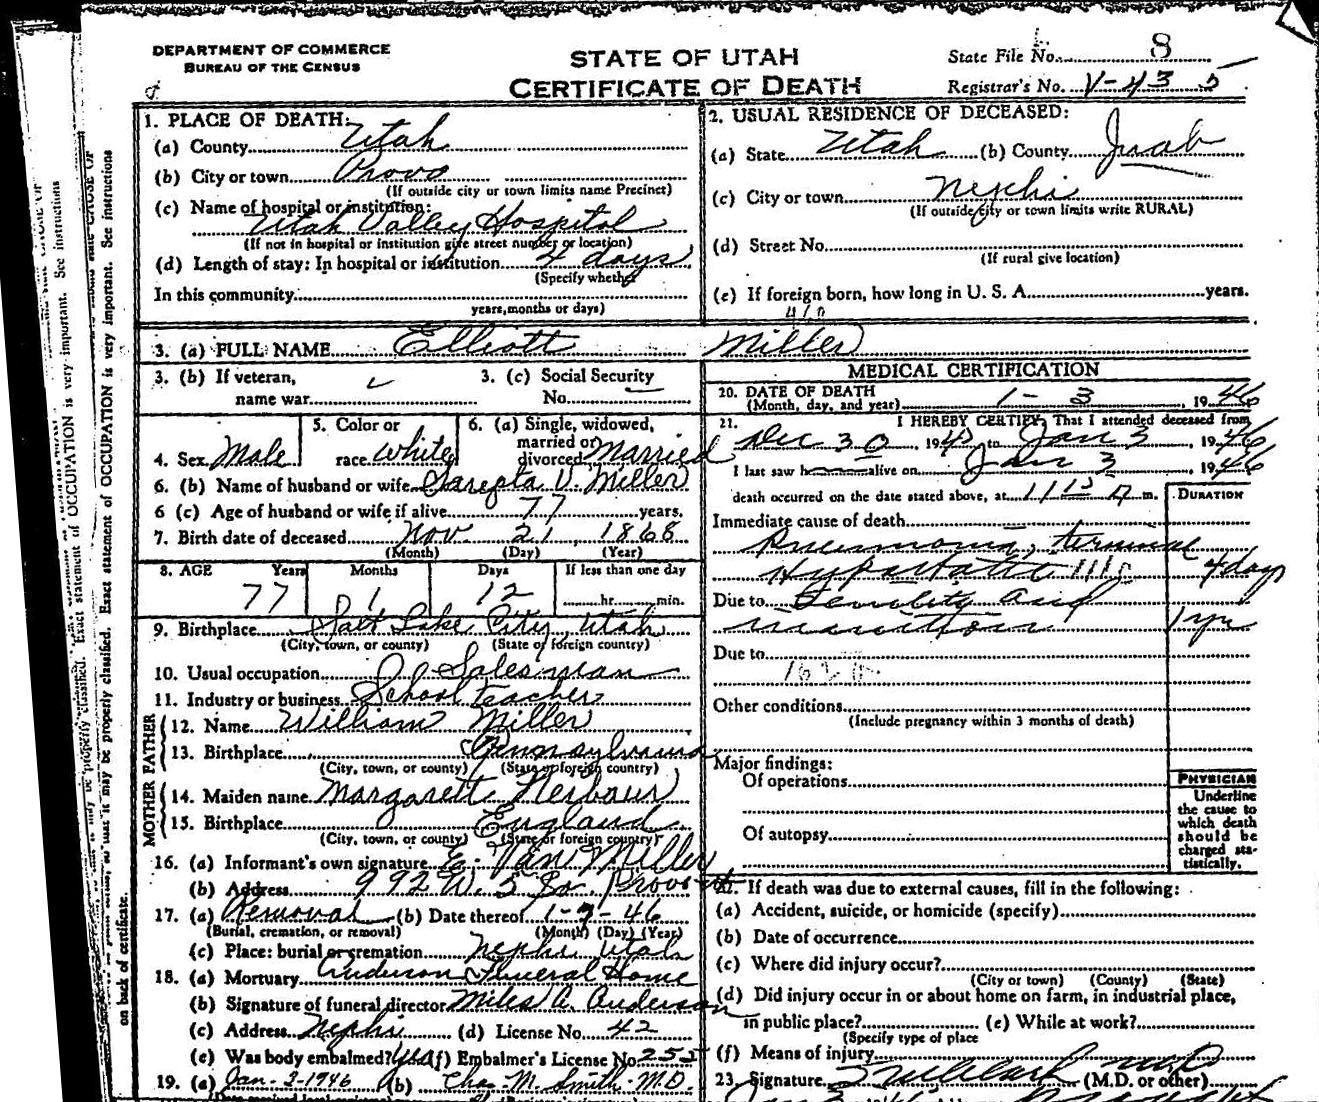 DEPARTMENT OF COMMERCE
BUREAU OF THE CENSUS
STATE OF UTAH
CERTIFICATE OF DEATH
State File No. 8
Registrar's No. V-43 5
1. PLACE OF DEATH:
(a) County Utah
(b) City or town Provo
(If outside city or town limits name Precinct)
(c) Name of hospital or institution:
Utah Valley Hospital
(If not in hospital or institution give street number or location)
(d) Length of stay: In hospital or institution 4 days
(Specify whether
In this community
years, months or days)
2. USUAL RESIDENCE OF DECEASED:
(a) State Utah (b) County Juab
(c) City or town Nephi
(If outside city or town limits write RURAL)
(d) Street No.
(If rural give location)
(e) If foreign born, how long in U. S. A. years.
3. (a) FULL NAME Elliott Miller
3. (b) If veteran,
name war
3. (c) Social Security
No.
4. Sex Male
5. Color or
race White
6. (a) Single, widowed,
married or
divorced Married
6. (b) Name of husband or wife Sarepta V. Miller
6 (c) Age of husband or wife if alive 77 years.
7. Birth date of deceased Nov. 21, 1868
(Month) (Day) (Year)
8. AGE Years Months Days If less than one day
77 1 12 hr. min.
9. Birthplace Salt Lake City, Utah
(City, town, or county) (State of foreign country)
10. Usual occupation Salesman
11. Industry or business School teacher
FATHER
12. Name William Miller
13. Birthplace Pennsylvania
(City, town, or county) (State or foreign country)
MOTHER
14. Maiden name Margarett
15. Birthplace England
(City, town, or county) (State or foreign country)
16. (a) Informant's own signature E. Van Miller
(b) Address 992 W. 5 So. Provo
17. (a) Removal (b) Date thereof 1-7-46
(Burial, cremation, or removal) (Month) (Day) (Year)
(c) Place: burial or cremation Nephi Utah
18. (a) Mortuary Anderson Funeral Home
(b) Signature of funeral director Miles A. Anderson
(c) Address Nephi (d) License No. 42
(e) Was body embalmed? Yes (f) Embalmer's License No. 255
19. (a) Jan-3-1946 (b) Chas. M. Smith M.D.
MEDICAL CERTIFICATION
20. DATE OF DEATH
(Month, day, and year) 1-3, 1946
21. I HEREBY CERTIFY, That I attended deceased from
Dec 30, 194 to Jan 3, 1946
I last saw h alive on Jan 3, 1946
death occurred on the date stated above, at 11 15 m.
DURATION
Immediate cause of death
Pneumonia, terminal
Hypostatic 4 days
Due to Senility and
inanition 1 yr
Due to
Other conditions
(Include pregnancy within 3 months of death)
Major findings:
Of operations
Of autopsy
PHYSICIAN
Underline
the cause to
which death
should be
charged sta-
tistically.
If death was due to external causes, fill in the following:
(a) Accident, suicide, or homicide (specify)
(b) Date of occurrence
(c) Where did injury occur?
(City or town) (County) (State)
(d) Did injury occur in or about home on farm, in industrial place,
in public place? (e) While at work?
(Specify type of place
(f) Means of injury
23. Signature M.D. (M.D. or other)
of OCCUPATION is very important. See instructions
may be properly classified. Exact statement of OCCUPATION is very important. See instructions
on back of certificate.